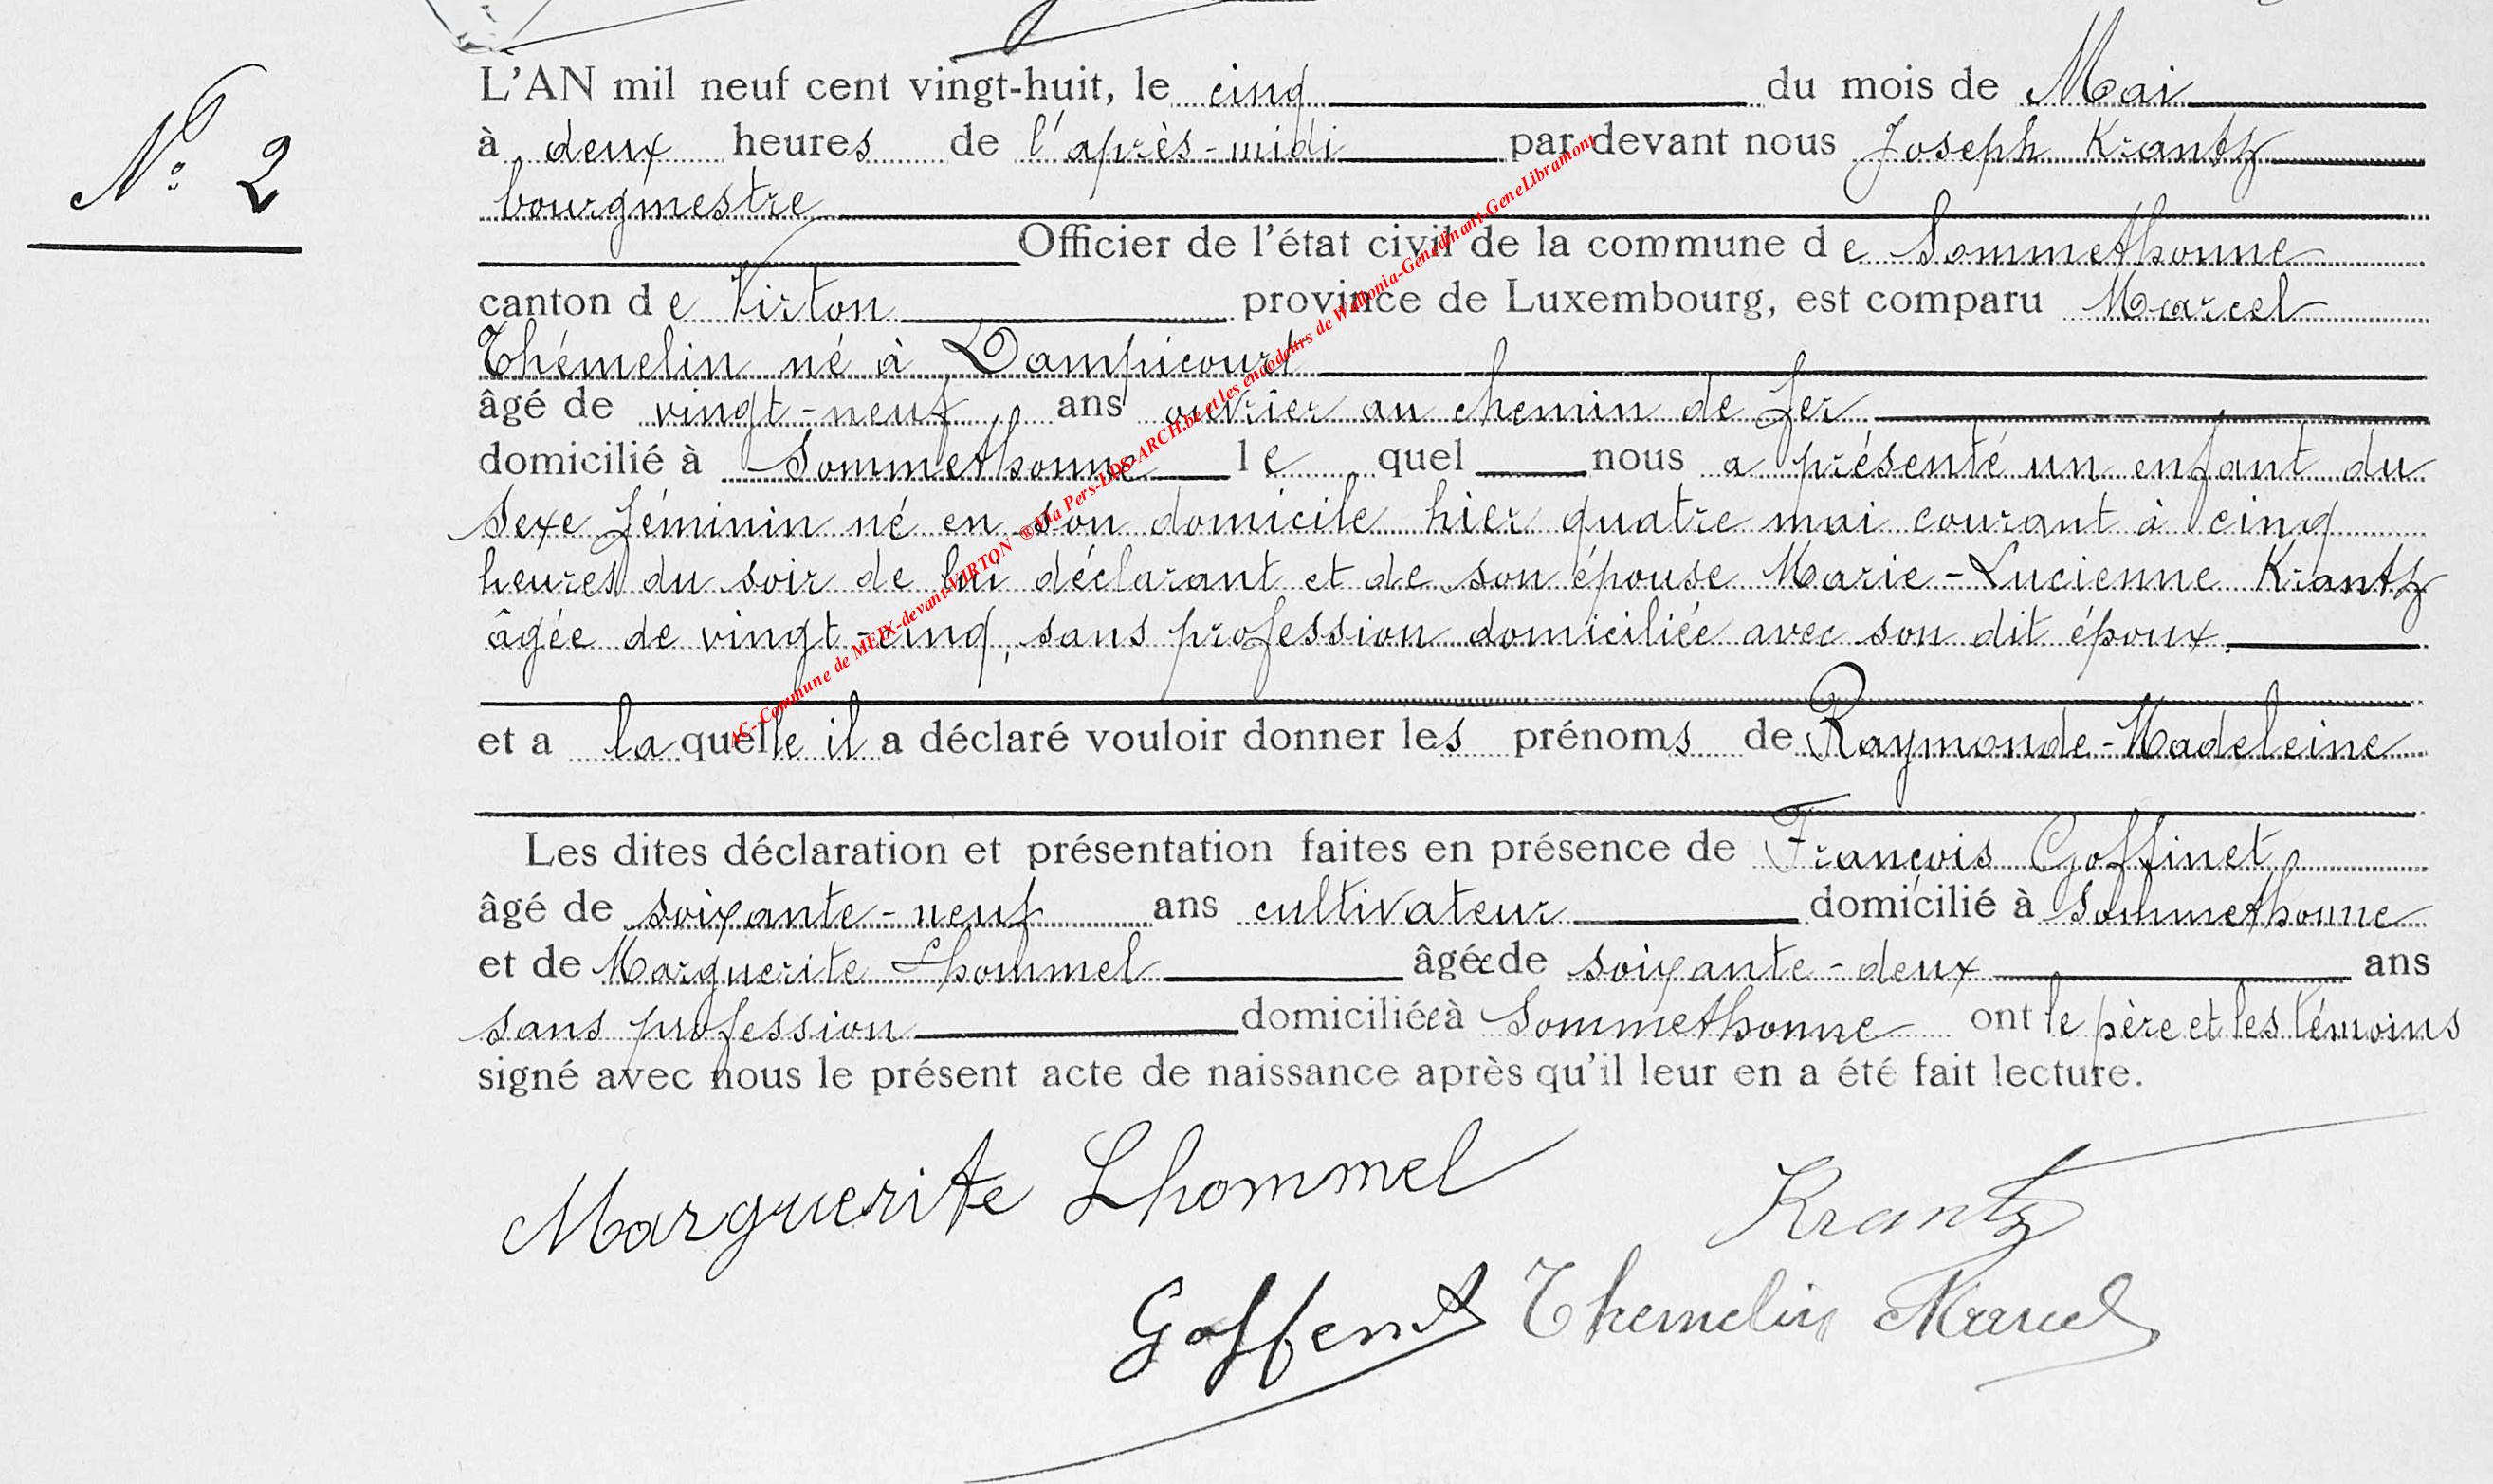 N° 2
L'AN mil neuf cent vingt-huit, le cinq du mois de Mai
à deux heures de l'après-midi par devant nous Joseph Krantz
bourgmestre
Officier de l'état civil de la commune de Sommethonne
canton de Virton province de Luxembourg, est comparu Marcel
Thémelin né à Dampicourt
âgé de vingt-neuf ans ouvrier au chemin de fer
domicilié à Sommethonne lequel nous a présenté un enfant du
sexe féminin né en son domicile hier quatre mai courant à cinq
heures du soir de lui déclarant et de son épouse Marie-Lucienne Krantz
âgée de vingt-cinq, sans profession domiciliée avec son dit époux.
et a laquelle il a déclaré vouloir donner les prénoms de Raymonde-Madeleine
Les dites déclaration et présentation faites en présence de François Goffinet
âgé de soixante-neuf ans cultivateur domicilié à Sommethonne
et de Marguerite Lhommel âgée de soixante-deux ans
sans profession domiciliée à Sommethonne ont le père et les témoins
signé avec nous le présent acte de naissance après qu'il leur en a été fait lecture.
Marguerite Lhommel
Krantz
Goffinet Themelin Marcel
AC-Commune de MEIX-devant-VIRTON ® Via Pers-LDS-ARCH.be et les encodeurs de Wallonia-Genedinant-GeneLibramont